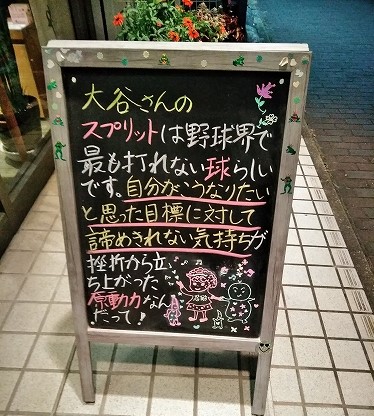 大谷さんの
スプリットは野球界で
最も打れない球らしい
です。自分がこうなりたい
と思った目標に対して
諦めきれない気持ちが
挫折から立
ち上がった
原動力なん
だって！